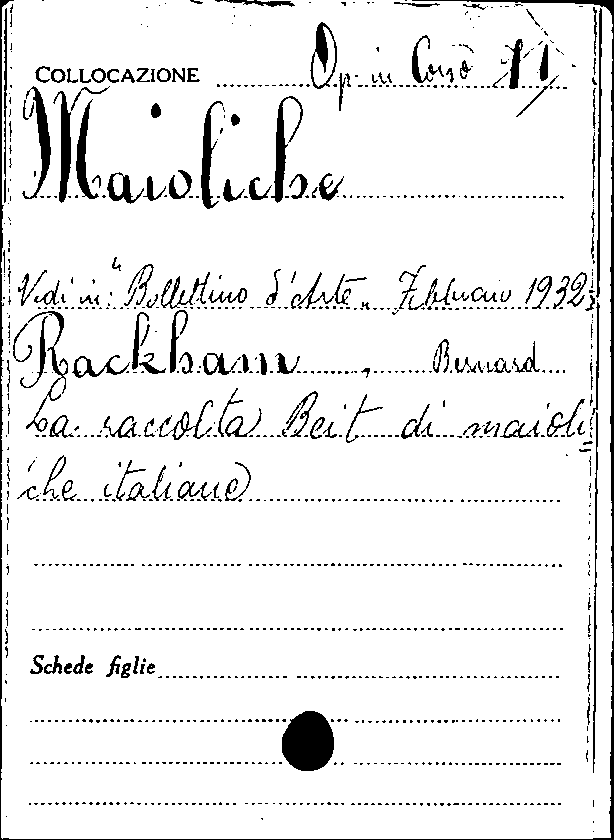 COLLOCAZIONE Op. in Corso 11
Maioliche
Vedi in: "Bollettino d'Arte„ Febbraio 1932
Rackham, Bernard
La raccolta Beit di maioli=
che italiane
Schede figlie